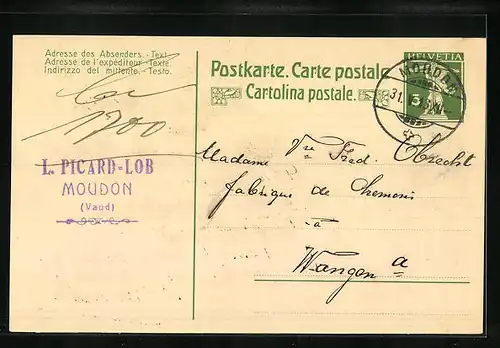 Adresse des Absenders.-Text.
Adresse de l'expéditeur.-Texte.
Indirizzo del mittente.-Testo.
Postkarte. Carte postale.
Cartolina postale.
HELVETIA
MOUDON
31.
1700
L. PICARD-LOB
MOUDON
(Vaud)
Madame Vve Fred. Obrecht
fabrique de
à
Wangen a